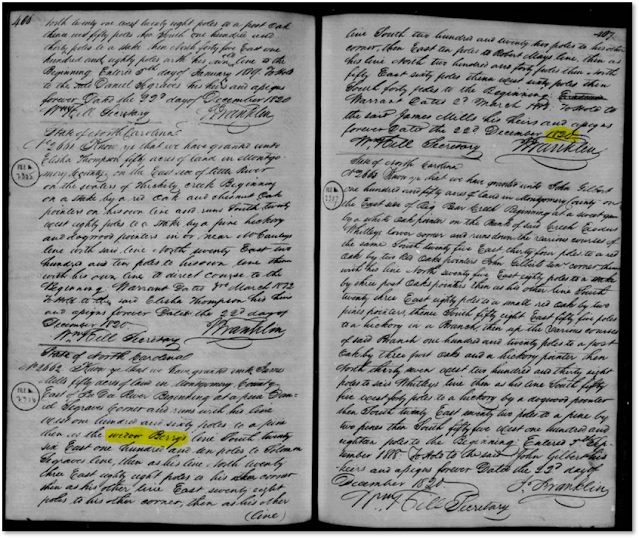 466
North twenty one west twenty eight poles to a post oak
then west fifty poles then South one hundred and
thirty poles to a stake then South forty five East one
hundred and eighty poles with his own line to the
Beginning Entered day of January 1819. To Hold
to the said Daniel Segraves his heirs and assigns
forever Dated the 22d day of December 1820
Wm Hill Secretary J. Franklin
State of North Carolina
No 2661 Know ye that we have granted unto
Elisha Thompson fifty acres of land in Montgo-
mery County on the East side of little River
on the waters of creek Beginning
on a stake by a red oak and chesnut oak
pointers on his own line and runs South twenty
west eighty poles to a stake by a pine hickory
and dogwood pointers in or near McCauleys
line with said line North seventy East two
hundred and ten poles to his own line then
with his own line to direct course to the
Beginning Warrant Dated March
To Hold to the said Elisha Thompson his heirs
and assigns forever Dated the 22d day of
December 1820.
Wm Hill Secretary J. Franklin
State of North Carolina
No 2662 Know ye that we have granted unto James
Mills fifty acres of land in Montgomery County
East of Pe Dee River Beginning at a pine
Segraves Corner and runs with his line
West one hundred and sixty poles to a pine
then as the widow Berry's line South twenty
six East one hundred and ten poles to Coleman
line, then as his line North seventy
three East eighty poles to his other corner
then as his other line East seventy eight
poles to his other corner, then as his other
(line)
467
line South two hundred and twenty two poles to his other
corner, then East ten poles to Robert Mays line, then as
his line North two hundred and forty poles then North
fifty East sixty poles then west sixty poles then
South forty poles to the Beginning
Warrant Dated 2d March To Hold to
the said James Mills his heirs and assigns
forever Dated the 22d December 1820.
Wm Hill Secretary J. Franklin
State of North Carolina
No 2663 Know ye that we have granted unto John Gilbert
one hundred and fifty acres of land in Montgomery County on
the East side of Big Bear Creek Beginning at a sweet gum
by a white oak pointer on the Bank of said Creek
Whitleys lower corner and runs down the various courses of
the same South twenty five East forty four poles to a red
oak by two red oaks pointers John Gilbert corner then
with his line North seventy five East eighty poles to a stake
by three post oaks pointers then as his other line South
twenty three East eighty poles to a small red oak by two
pines pointers, thence South fifty eight East fifty five poles
to a hickory in a Branch, then up the various courses
of said Branch one hundred and twenty poles to a post
oak by three post oaks and a hickory pointers then
North thirty seven west one hundred and thirty eight
poles to said Whitleys line then as his line South fifty
five west poles to a hickory by a and dogwood pointers
then South twenty East seventy two poles to a pine by
two pines then South fifty five west one hundred and
eighteen poles to the Beginning Entered 3d Sep-
tember To Hold to the said John Gilbert his
heirs and assigns forever Dated the 22d day of
December 1820. J. Franklin
Wm Hill Secretary